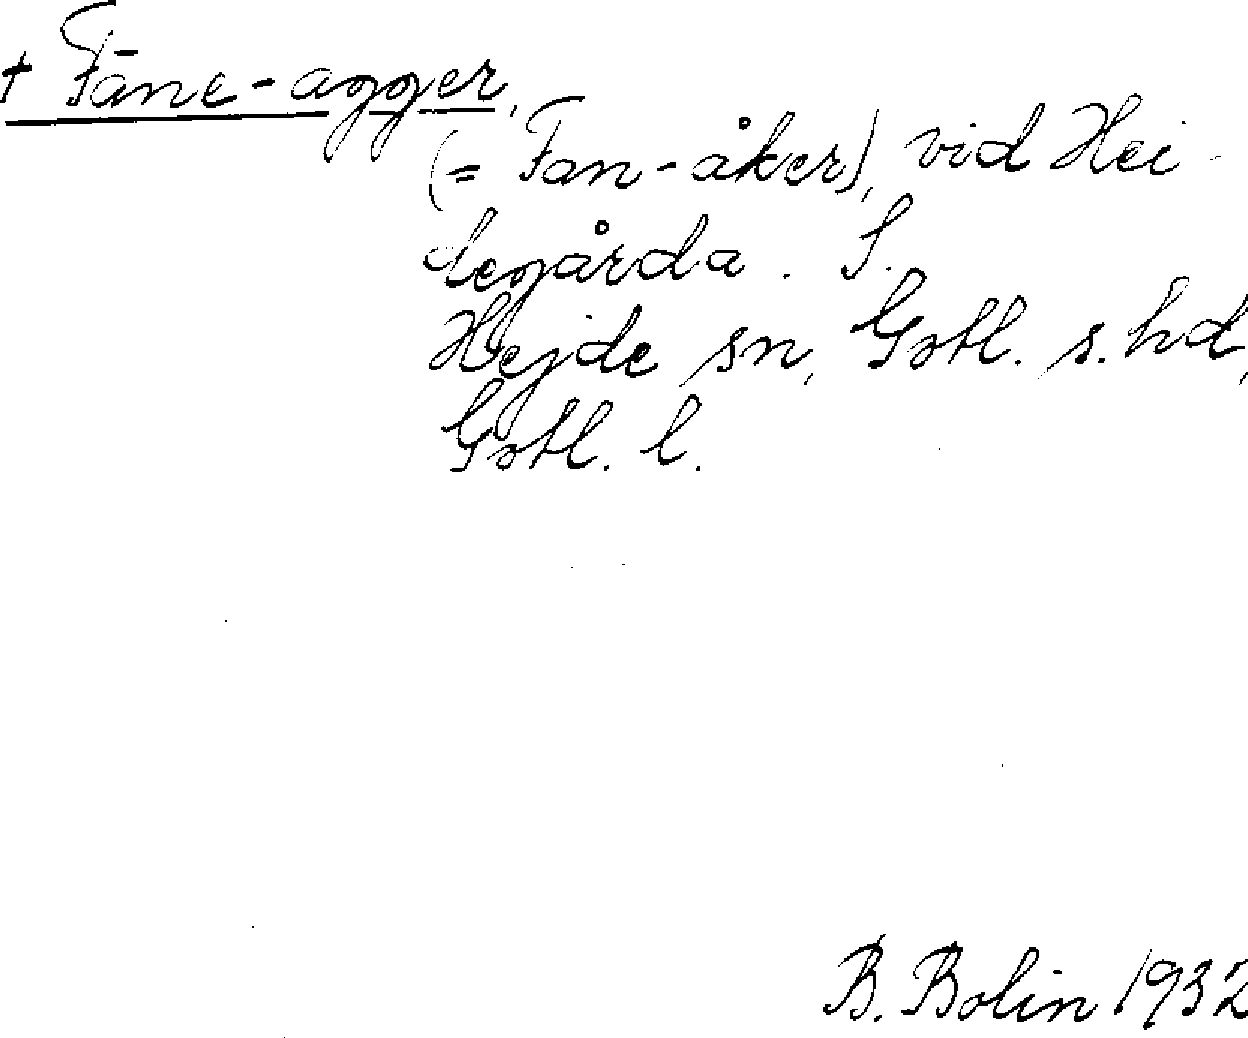 + Fāne-agger,
(= Fan-åker), vid Hei-
degårda. S.
Hejde sn, Gotl. s. hd,
Gotl. l.
B. Bolin 1932